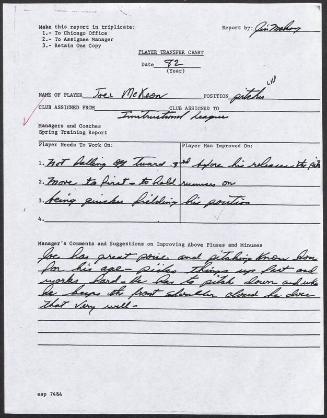 Make this report in triplicate:
1.- To Chicago Office
2.- To Assignee Manager
3.- Retain One Copy
Report by: Jim
PLAYER TRANSFER CARDT
Date 82
(Year)
NAME OF PLAYER Joel McKeon POSITION pitcher
CLUB ASSIGNED FROM CLUB ASSIGNED TO
Instructional League
Managers and Coaches
Spring Training Report
Player Needs To Work On: Player Has Improved On:
1. Not falling off toward 3rd before his release the
2. Move to first - to hold runners on
3. being quicker fielding his position
4.
Manager's Comments and Suggestions on Improving Above Pluses and Minuses
Joe has great poise and pitching know how
for his age - picks things up fast and
works hard - he has to pitch down and
he keeps the front shoulder closed he does
that very well -
esp 7484